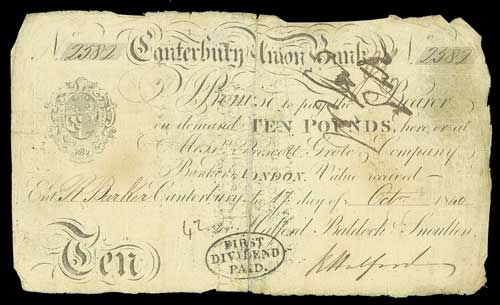 No. 2582 Canterbury Union Bank No. 2582
I Promise to pay the Bearer
on demand TEN POUNDS, here, or at
Messrs. Prescott, Grote & Company
Bankers, LONDON. Value received
Entd. Canterbury the 17 day of Octr. 1840
42 For Halford Baldock & Snoulten
Ten
FIRST
DIVIDEND
PAID.